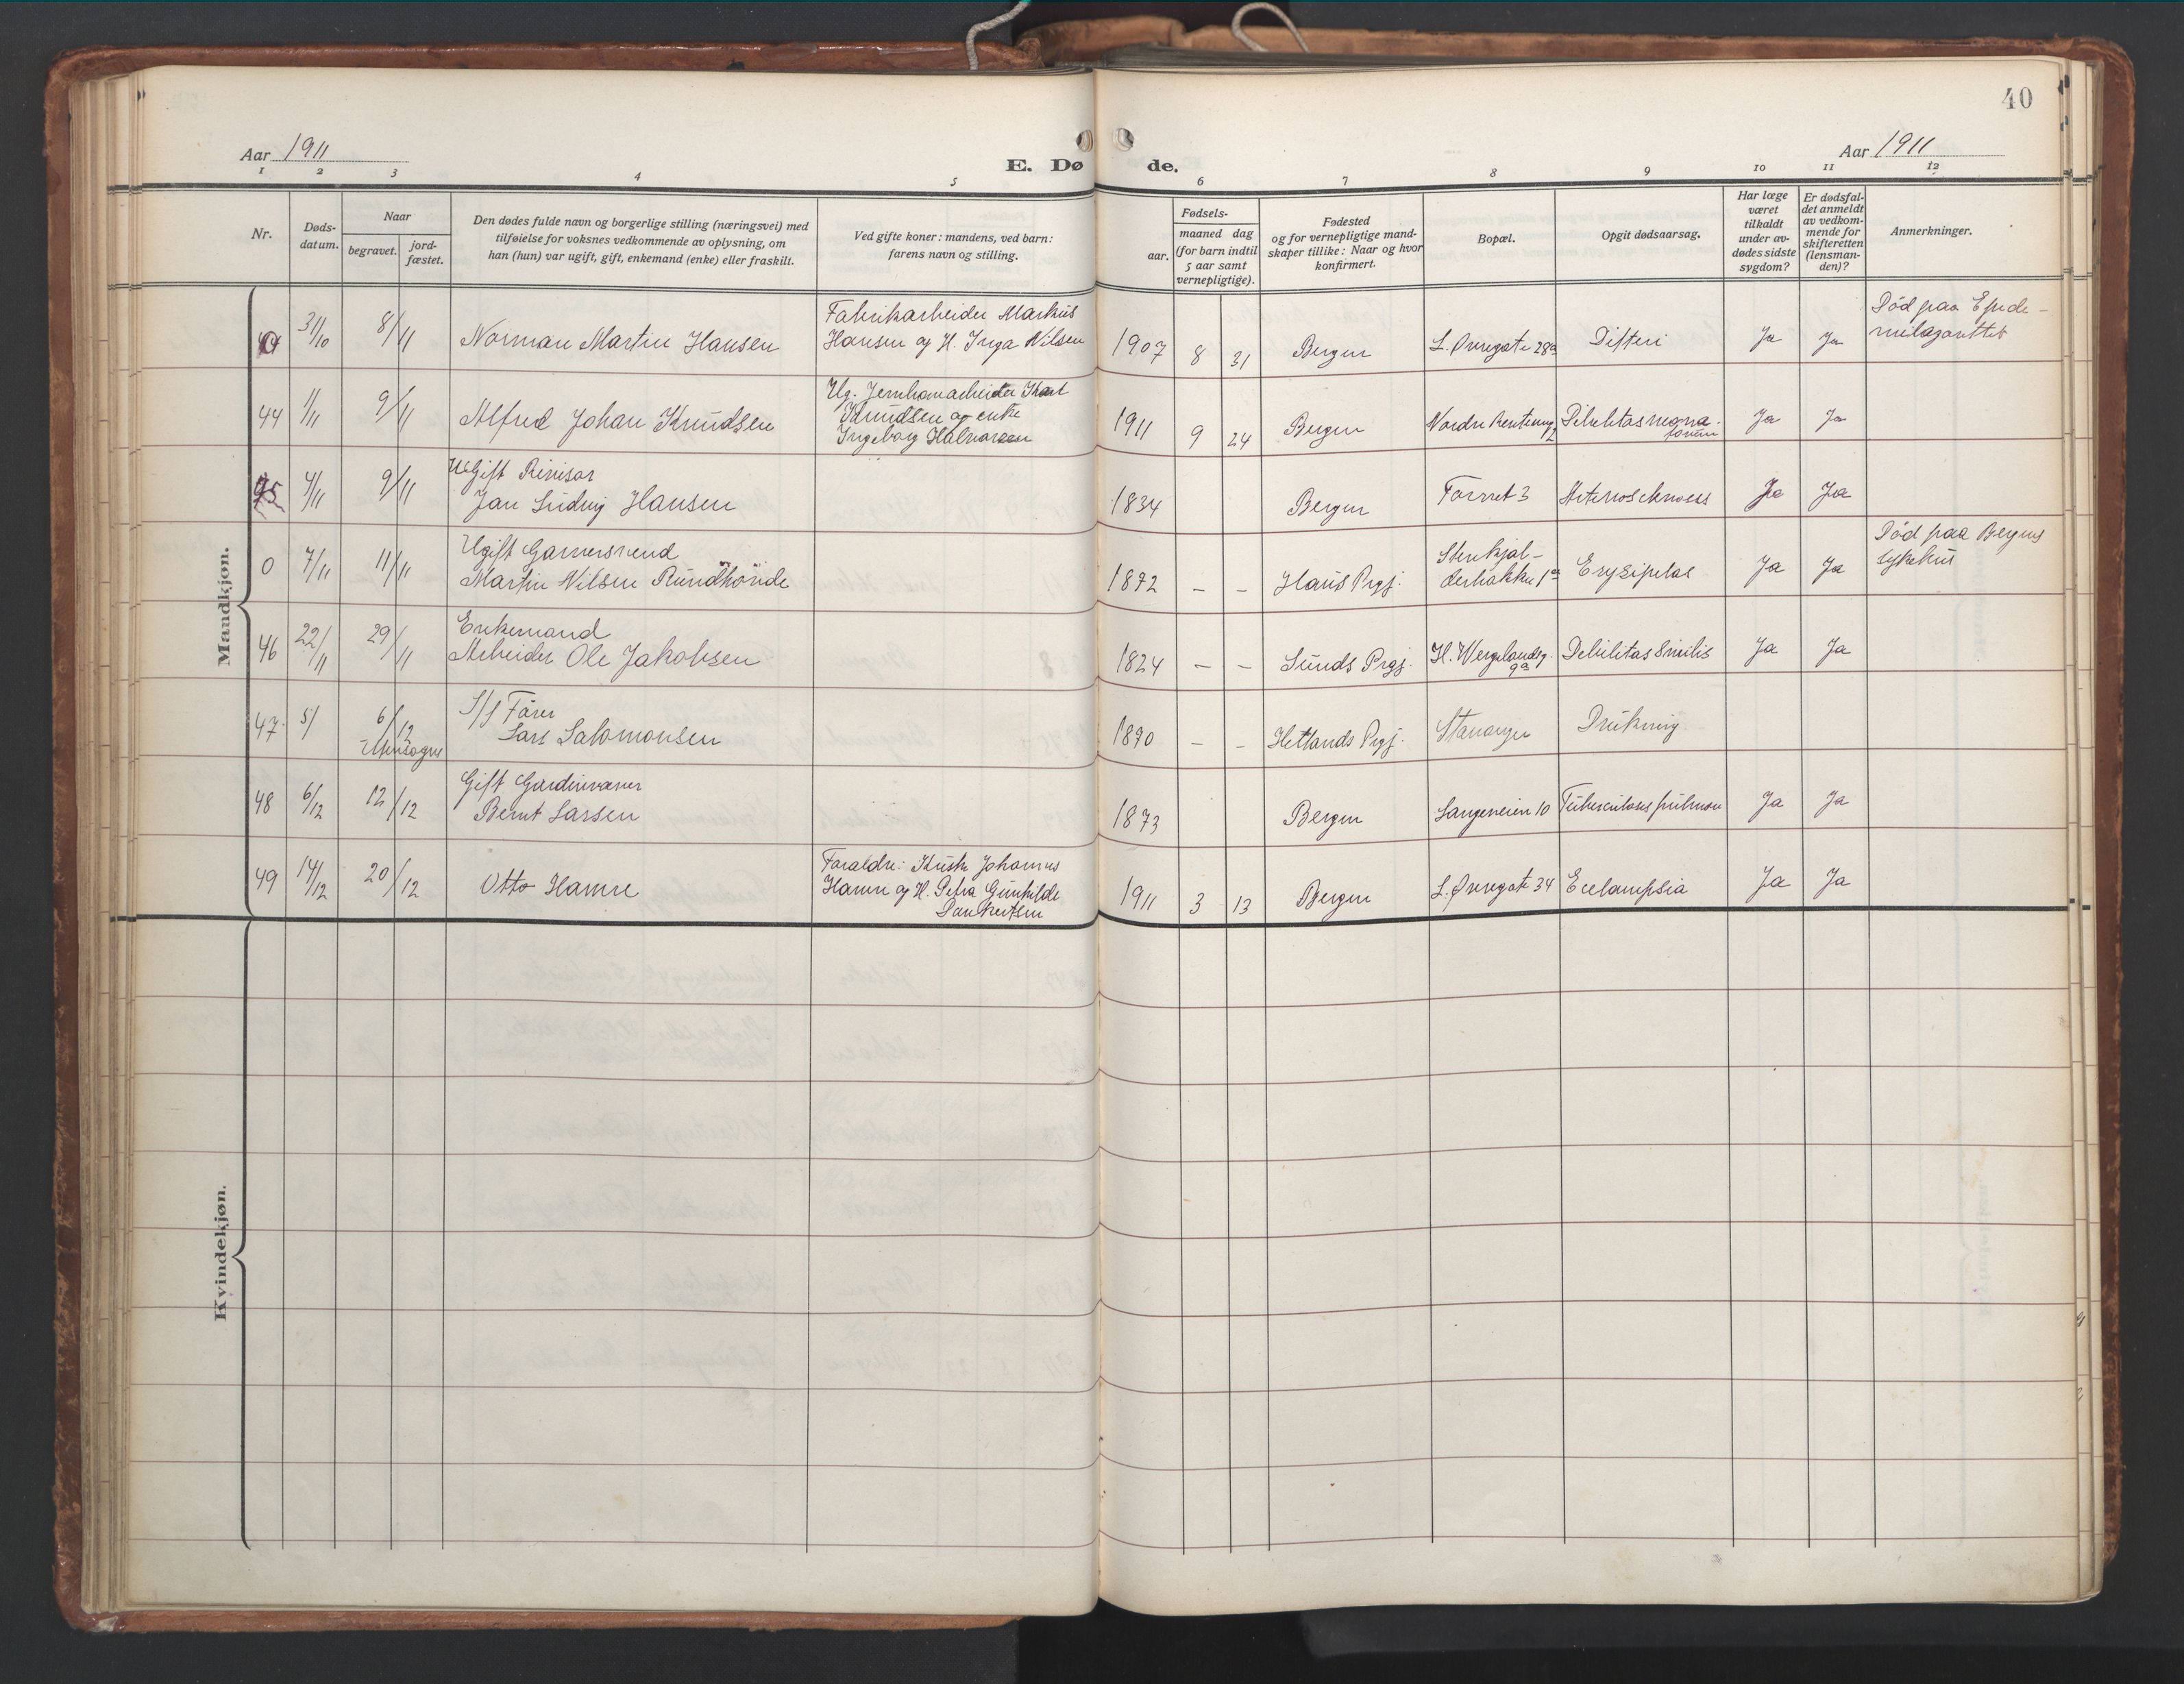 40
Aar 1911
E. Dø
de.
Aar 1911
1 2 3 4 5 6 7 8 9 10 11 12
Nr.
Døds-
datum.
Naar
begravet.
jord-
fæstet.
Den dødes fulde navn og borgerlige stilling (næringsvei) med
tilføielse for voksnes vedkommende av oplysning, om
han (hun) var ugift, gift, enkemand (enke) eller fraskilt.
Ved gifte koner: mandens, ved barn:
farens navn og stilling.
Fødsels-
aar.
maaned dag
(for barn indtil
5 aar samt
vernepligtige).
Fødested
og for vernepligtige mand-
skaper tillike: Naar og hvor
konfirmert.
Bopæl.
Opgit dødsaarsag.
Har læge
været
tilkaldt
under av-
dødes sidste
sygdom?
Er dødsfal-
det anmeldt
av vedkom-
mende for
skifteretten
(lensman-
den)?
Anmerkninger.
Mandkjøn.
31/10 8/11 Norman Martin Hansen
Fabrikarbeider Markus
Hansen og H. Inga Nilsen
1907 8 31 Bergen L. Øvregate 28a Difteri Ja Ja
Død paa Epide-
milazarettet
44 1/11 9/11 Alfred Johan Knudsen
Ug. Jernbanarbeider
Knudsen og enke
Ingeborg Halvorsen
1911 9 24 Bergen Nordre Debilitas neona-
torum
Ja Ja
45 4/11 9/11 Ugift Revisor
Jan Ludvig Hansen
1834 Bergen Torvet 3 Ja Ja
0 7/11 11/11 Ugift Garversvend
Martin Nilsen Rundhovde
1872 - - Haus Prgj.
Stenkjel-
derbakken 1a
Erysipelas Ja Ja
Død paa Bergens
sykehus
46 22/11 29/11 Enkemand
Arbeider Ole Jakobsen
1824 - - Sunds Prgj. H. Wergelandsg.
9a
Debilitas Senilis Ja Ja
47. 5/ 6/12
S/S Fører
Lars Salomonsen
1890 - - Hetlands Prgj. Stavanger Drukning
48 6/12 12/12 Gift Gardinvæver
Bernt Larsen
1873 Bergen Langeveien 10 Tuberculosis pulmon Ja Ja
49 14/12 20/12 Otto Hamre
Forældre: Kusk Johannes
Hamre og H. Petra Gunhilde
Dankertsen
1911 3 13 Bergen L. Øvregate 34 Eclampsia Ja Ja
Kvindekjøn.